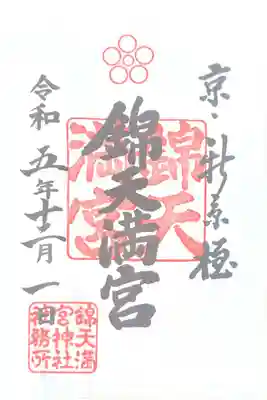 京・新京極
錦天満宮
錦天
満宮
令和五年十二月一日
錦天満
宮神社
社務所